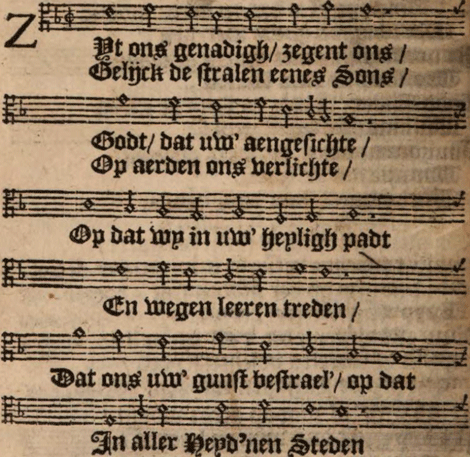 ZYt ons genadigh/ zegent ons /
Gelijck de stralen eenes Sons /
Godt/ dat uw' aengesichte /
Op aerden ons verlichte /
Op dat wy in uw' heyligh padt
En wegen leeren treden /
Dat ons uw' gunst bestrael'/ op dat
In aller Heyd'nen Steden